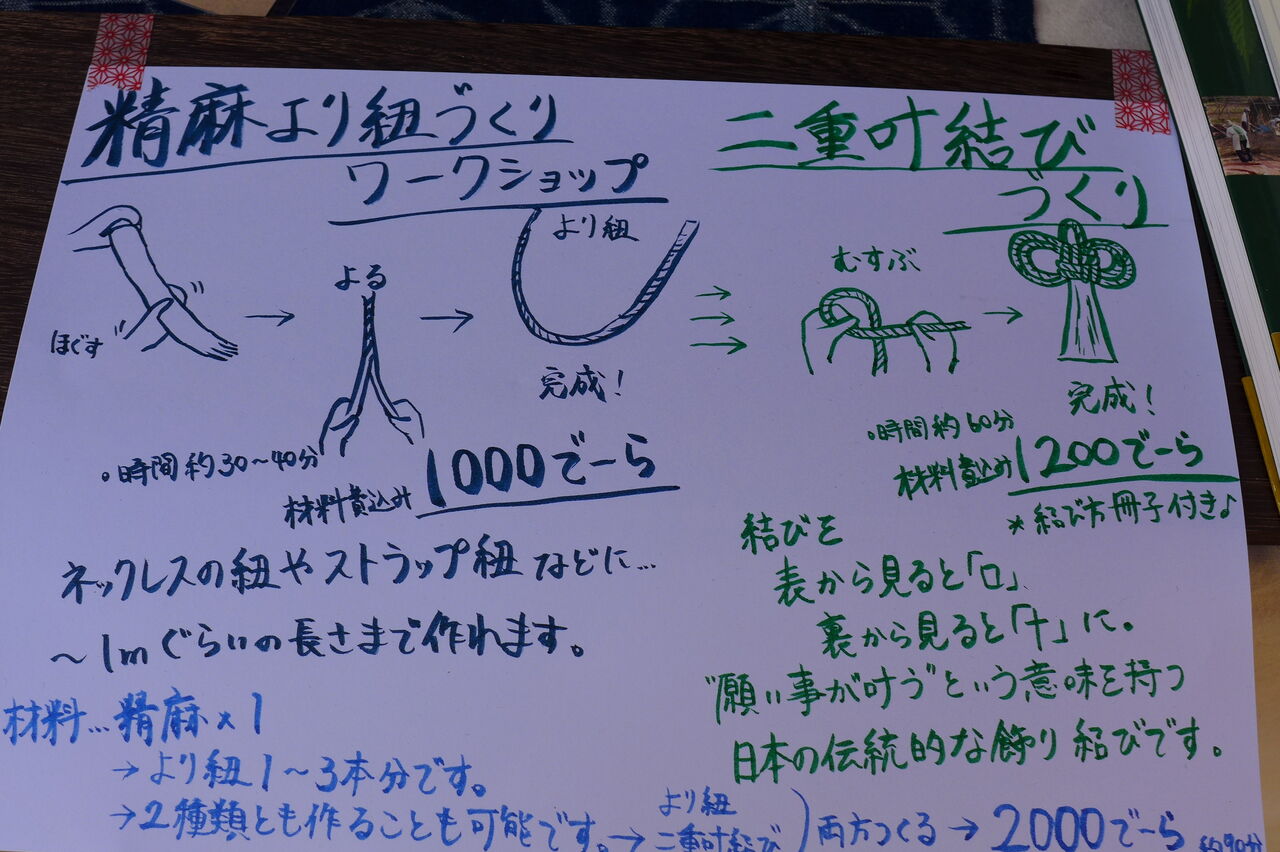 精麻より紐づくり
ワークショップ
ほぐす
よる
より紐
完成!
。時間約30～40分
材料費込み 1000でーら
ネックレスの紐やストラップ紐などに…
～1mぐらいの長さまで作れます。
材料…精麻×1
→より紐1～3本分です。
→2種類とも作ることも可能です。→より紐
二重叶結び
両方つくる→2000でーら 約90分
二重叶結び
づくり
むすぶ
完成!
。時間約60分
材料費込み 1200でーら
*結び方冊子付き♪
結びを
表から見ると「口」、
裏から見ると「十」に。
"願い事が叶う"という意味を持つ
日本の伝統的な飾り結びです。